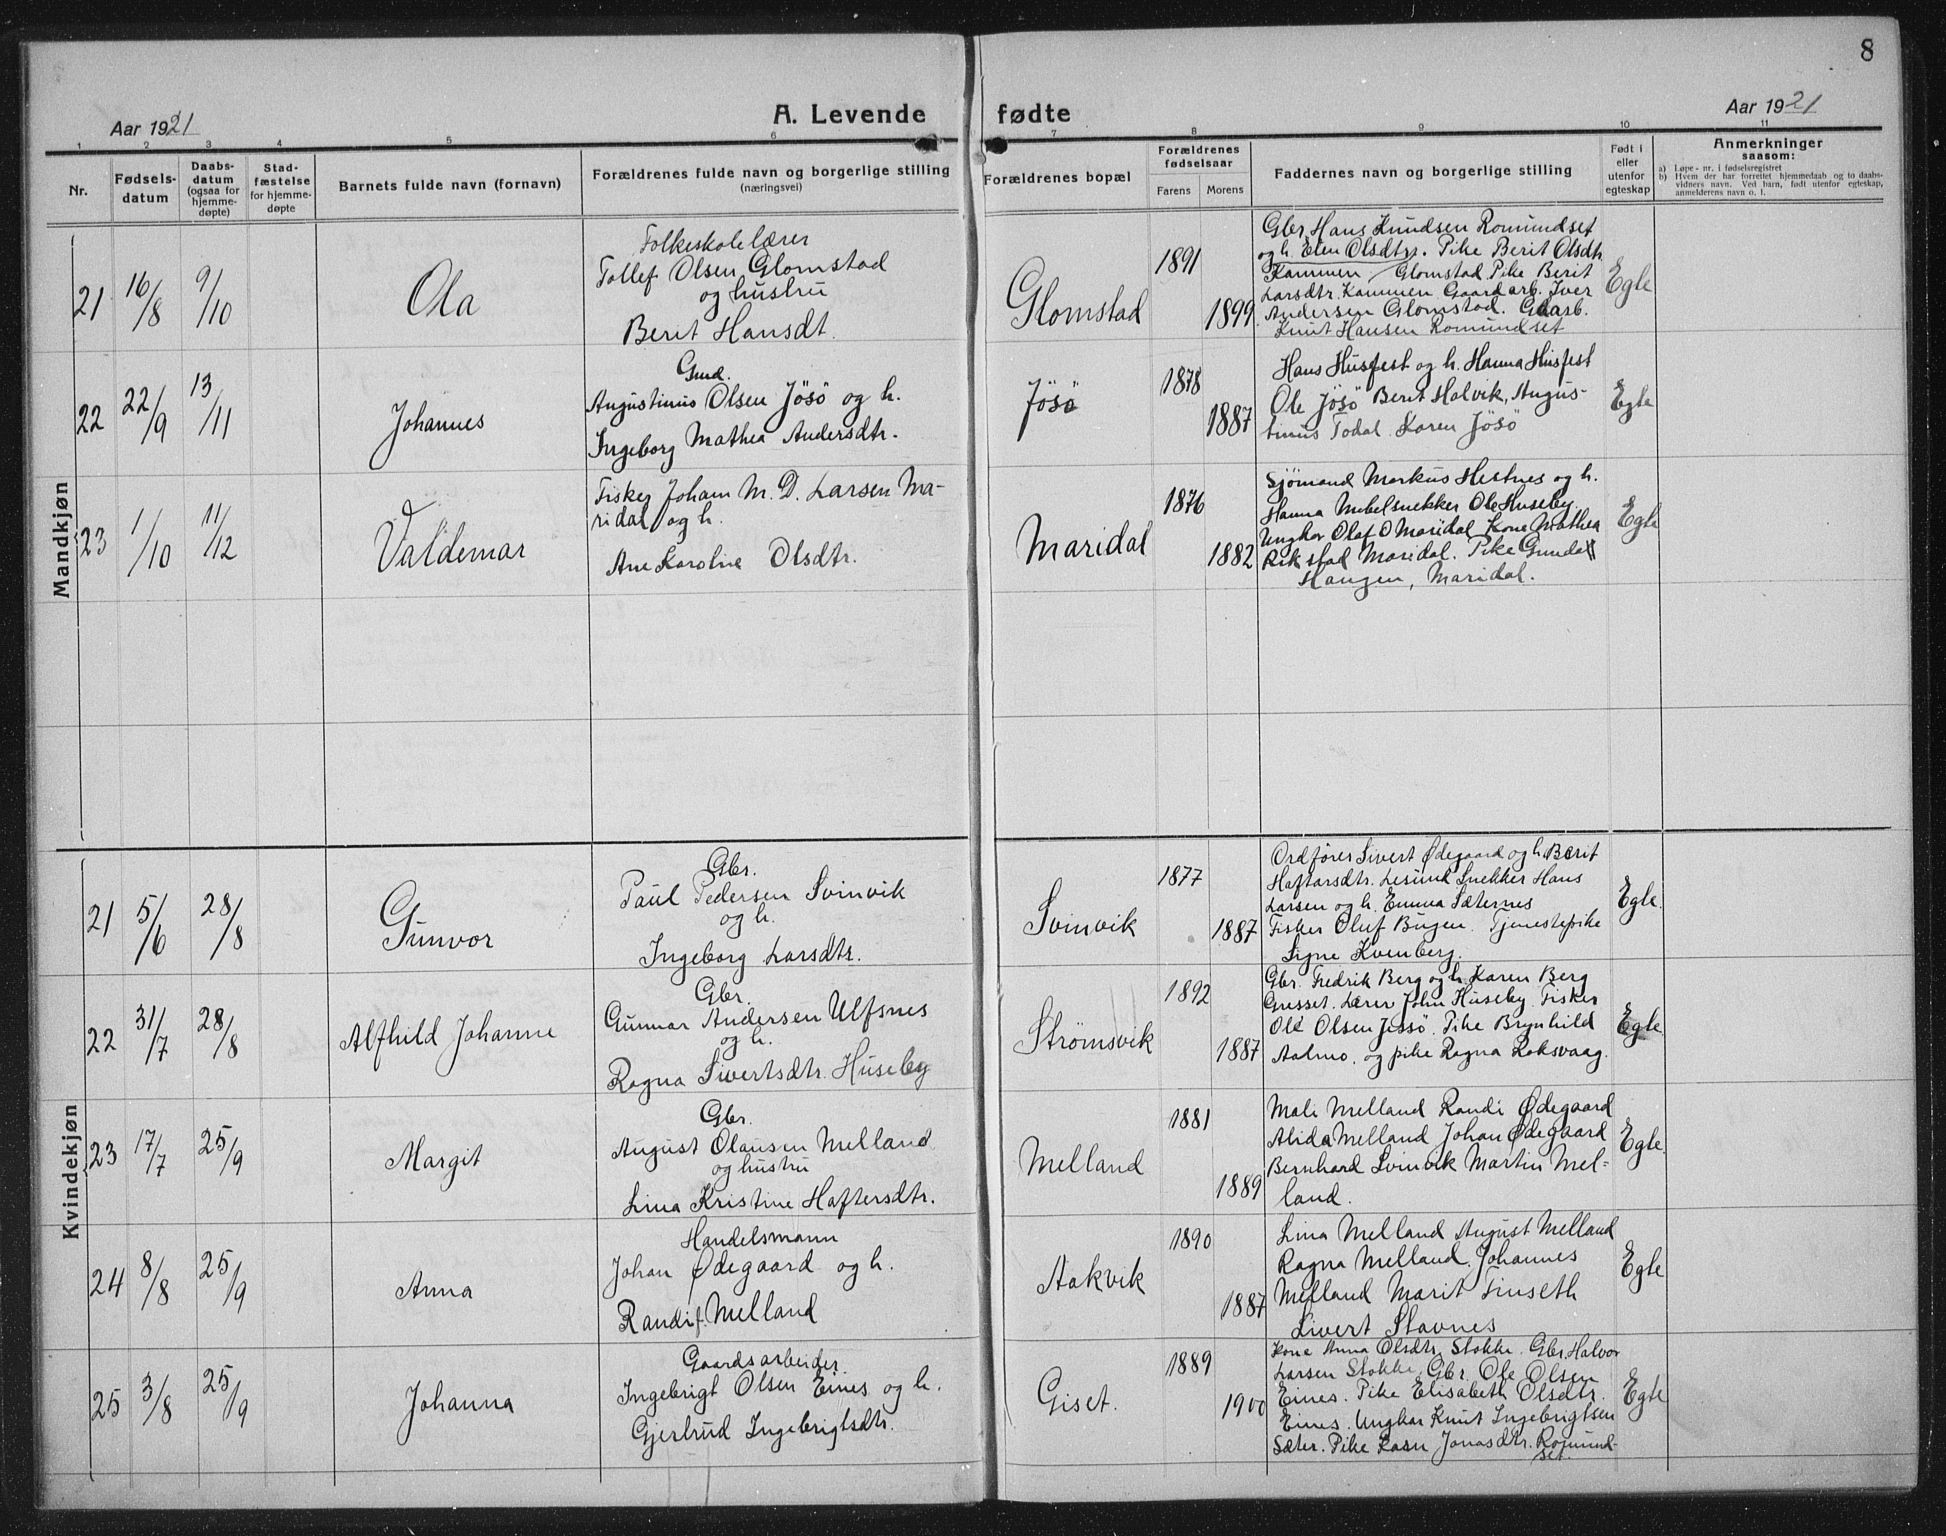 8
Aar 1921
A. Levende fødte
Aar 1921
1 2 3 4 5 6 7 8 9 10 11
Nr.
Fødsels-
datum
Daabs-
datum
(ogsaa for
hjemme-
døpte)
Stad-
fæstelse
for hjemme-
døpte
Barnets fulde navn (fornavn)
Forældrenes fulde navn og borgerlige stilling
(næringsvei)
Forældrenes bopæl
Forældrenes
fødselsaar
Farens
Morens
Faddernes navn og borgerlige stilling
Født i
eller
utenfor
egteskap
Anmerkninger
saasom:
a) Løpe-nr. i fødselsregistret
b) Hvem der har forrettet hjemmedaab og to daabs-
vidners navn. Ved barn, født utenfor egteskap,
anmelderens navn o. l.
Mandkjøn
21 16/8 9/10
Ola
Folkeskolelærer
Tollef Olsen Glomstad
og hustru
Berit Hansdt.
Glomstad
1891
1899
Gbr. Hans Knudsen Romundset
og h. Elen Olsdtr. Pike Berit Olsdtr.
Kammen Glomstad Pike Berit
Larsdtr. Kammen Gaardarb. Iver
Andersen Glomstad. Gaarb.
Knut Hansen Romundset
Egte
22 22/9 13/11
Johannes
Gmd.
Augustinus Olsen Jösö og h.
Ingeborg Mathea Andersdtr.
Jösö
1878
1887
Hans Husfest og h. Hanna Husfest
Ole Jösö Berit Halvik, Augus-
tinus Todal Karen Jösö
Egte
23 1/10 11/12
Valdemar
Fisker Johan M. D. Larsen Ma-
ridal og h.
Ane Karoline Olsdtr.
Maridal
1876
1882
Sjømand Markus Hestnes og h.
Hanna Møbelsnekker Ole Huseby
Ungkar Olaf O Maridal Kone Mathea
Rikstad Maridal. Pike Gunda
Haugen, Maridal.
Egte
Kvindekjøn
21 5/6 28/8
Gunvor
Gbr.
Paul Pedersen Svinvik
og h.
Ingeborg Larsdtr.
Svinvik
1877
1887
Ordfører Sivert Ødegaard og h. Berit
Haftorsdtr. Snekker Hans
Larsen og h. Emma Sæternes
Fisker Oluf Bugen. Tjenestepike
Signe Kvenberg.
Egte.
22 31/7 28/8
Alfhild Johanne
Gbr.
Gunnar Andersen Ulfsnes
og h.
Ragna Sivertsdtr. Huseby
Strømsvik
1892
1887
Gbr. Fredrik Berg og h. Karen Berg
Gresset. Lærer John Huseby Fisker
Ole Olsen Jøssø. Pike Brynhild
Aalmo, og pike Ragna Roksvaag.
Egte.
23 17/7 25/9
Margit
Gbr.
August Olausen Melland
og hustru
Lina Kristine Haftersdtr.
Melland
1881
1889
Mali Melland Randi Ødegaard
Alida Melland Johan Ødegaard
Bernhard Svinvik Martin Mel-
land.
Egte.
24 8/8 25/9
Anna
Handelsmann
Johan Ødegaard og h.
Randi f. Melland
Aakvik
1890
1887
Lina Melland August Melland
Ragna Melland. Johannes
Melland Marit Tinseth
Sivert Stavnes
Egte
25 3/8 25/9
Johanna
Gaardsarbeider
Ingebrigt Olsen Eines og h.
Gjertrud Ingebrigtsdtr.
Giset.
1889
1900
Kone Anna Olsdtr. Stokke. Gbr. Halvor
Larsen Stokke, Gbr. Ole Olsen
Eines. Pike Elisabeth Olsdtr.
Eines. Ungkar Knut Ingebrigtsen
Sæter. Pike Karn Jonasdtr. Romund-
set.
Egte